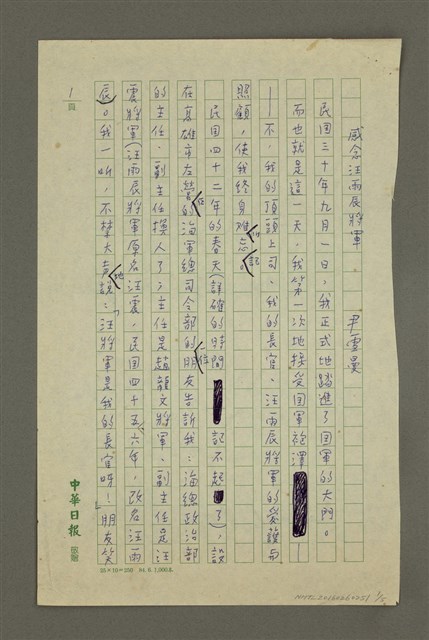 感念汪雨辰將軍 尹雪曼
民国三十年九月一日,我正式地踏進了国軍的大門。
而也就是這一天,我第一次地接受国軍袍澤
——不,我的頂頭上司、我的長官、汪雨辰將軍的愛護与
照顧,使我終身难忘。
民国四十二年的春天(詳確的時間記不起了),說
在高雄市左營的海軍總司令部的朋友告訴我:海總政治部
的主任、副主任換人了;主任是趙龍文將軍、副主任是汪
震將軍(汪雨辰將軍原名汪震,民国四十五、六年,改名汪雨
辰)。我一听,不禁大声地說:「汪將軍是我的長官呀!」朋友笑
1
頁
中華日報
25×10=250 84.6.1,000本